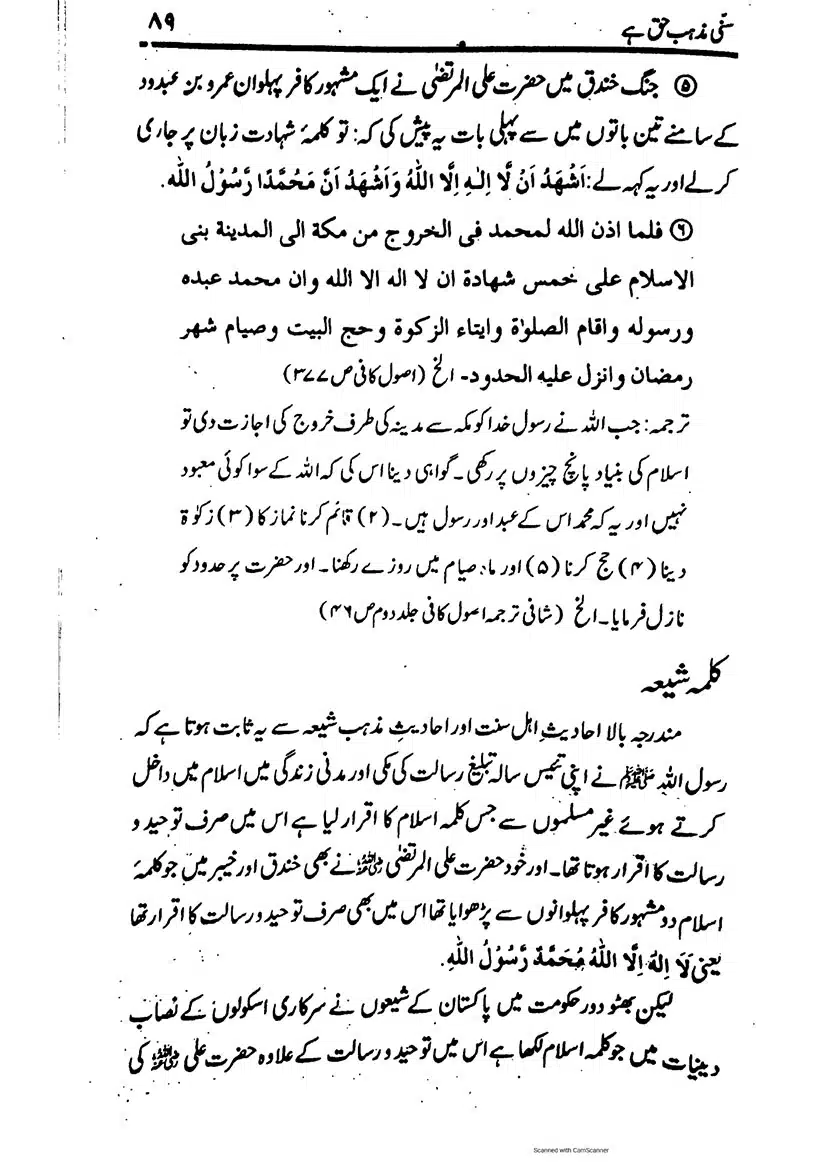 سنّی مذہب حق ہے
۸۹
⑤ جنگ خندق میں حضرت علی المرتضیٰ نے ایک مشہور کافر پہلوان عمرو بن عبدود
کے سامنے تین باتوں میں سے پہلی بات یہ پیش کی کہ: تو کلمۂ شہادت زبان پر جاری
کرلے اور یہ کہہ لے: اَشْهَدُ اَنْ لَّا اِلٰهَ اِلَّا اللّٰهُ وَاَشْهَدُ اَنَّ مَحُمَّدًا رَّسُوْلُ اللّٰه.
⑥ فلما اذن الله لمحمد فى الخروج من مكة الى المدينة بنى
الاسلام على خمس شهادة ان لا اله الا الله وان محمد عبده
ورسوله واقام الصلوٰة وايتاء الزكوة وحج البيت وصيام شهر
رمضان وانزل عليه الحدود۔ الخ (اصول کافی ص ۳۷۷)
ترجمہ: جب اللہ نے رسول خدا کو مکہ سے مدینہ کی طرف خروج کی اجازت دی تو
اسلام کی بنیاد پانچ چیزوں پر رکھی۔ گواہی دینا اس کی کہ اللہ کے سوا کوئی معبود
نہیں اور یہ کہ محمد اس کے عبد اور رسول ہیں۔ (۲) قائم کرنا نماز کا (۳) زکوٰۃ
دینا (۴) حج کرنا (۵) اور ماہ صیام میں روزے رکھنا۔ اور حضرت پر حدود کو
نازل فرمایا۔ الخ (شافی ترجمہ اصول کافی جلد دوم ص ۴۶)
کلمہ شیعہ
مندرجہ بالا احادیثِ اہل سنت اور احادیثِ مذہب شیعہ سے یہ ثابت ہوتا ہے کہ
رسول اللہ ﷺ نے اپنی تیئس سالہ تبلیغ رسالت کی مکی اور مدنی زندگی میں اسلام میں داخل
کرتے ہوئے غیر مسلموں سے جس کلمہ اسلام کا اقرار لیا ہے اس میں صرف توحید و
رسالت کا اقرار ہوتا تھا۔ اور خود حضرت علی المرتضیٰ رضی اللہ عنہ نے بھی خندق اور خیبر میں جو کلمۂ
اسلام دو مشہور کافر پہلوانوں سے پڑھوایا تھا اس میں بھی صرف توحید و رسالت کا اقرار تھا
یعنی لَا اِلٰهَ اِلَّا اللّٰهُ مُحَمَّدٌ رَّسُوْلُ اللّٰهِ.
لیکن بھٹو دور حکومت میں پاکستان کے شیعوں نے سرکاری اسکولوں کے نصاب
دینیات میں جو کلمہ اسلام لکھا ہے اس میں توحید و رسالت کے علاوہ حضرت علی رضی اللہ عنہ کی
Scanned with CamScanner